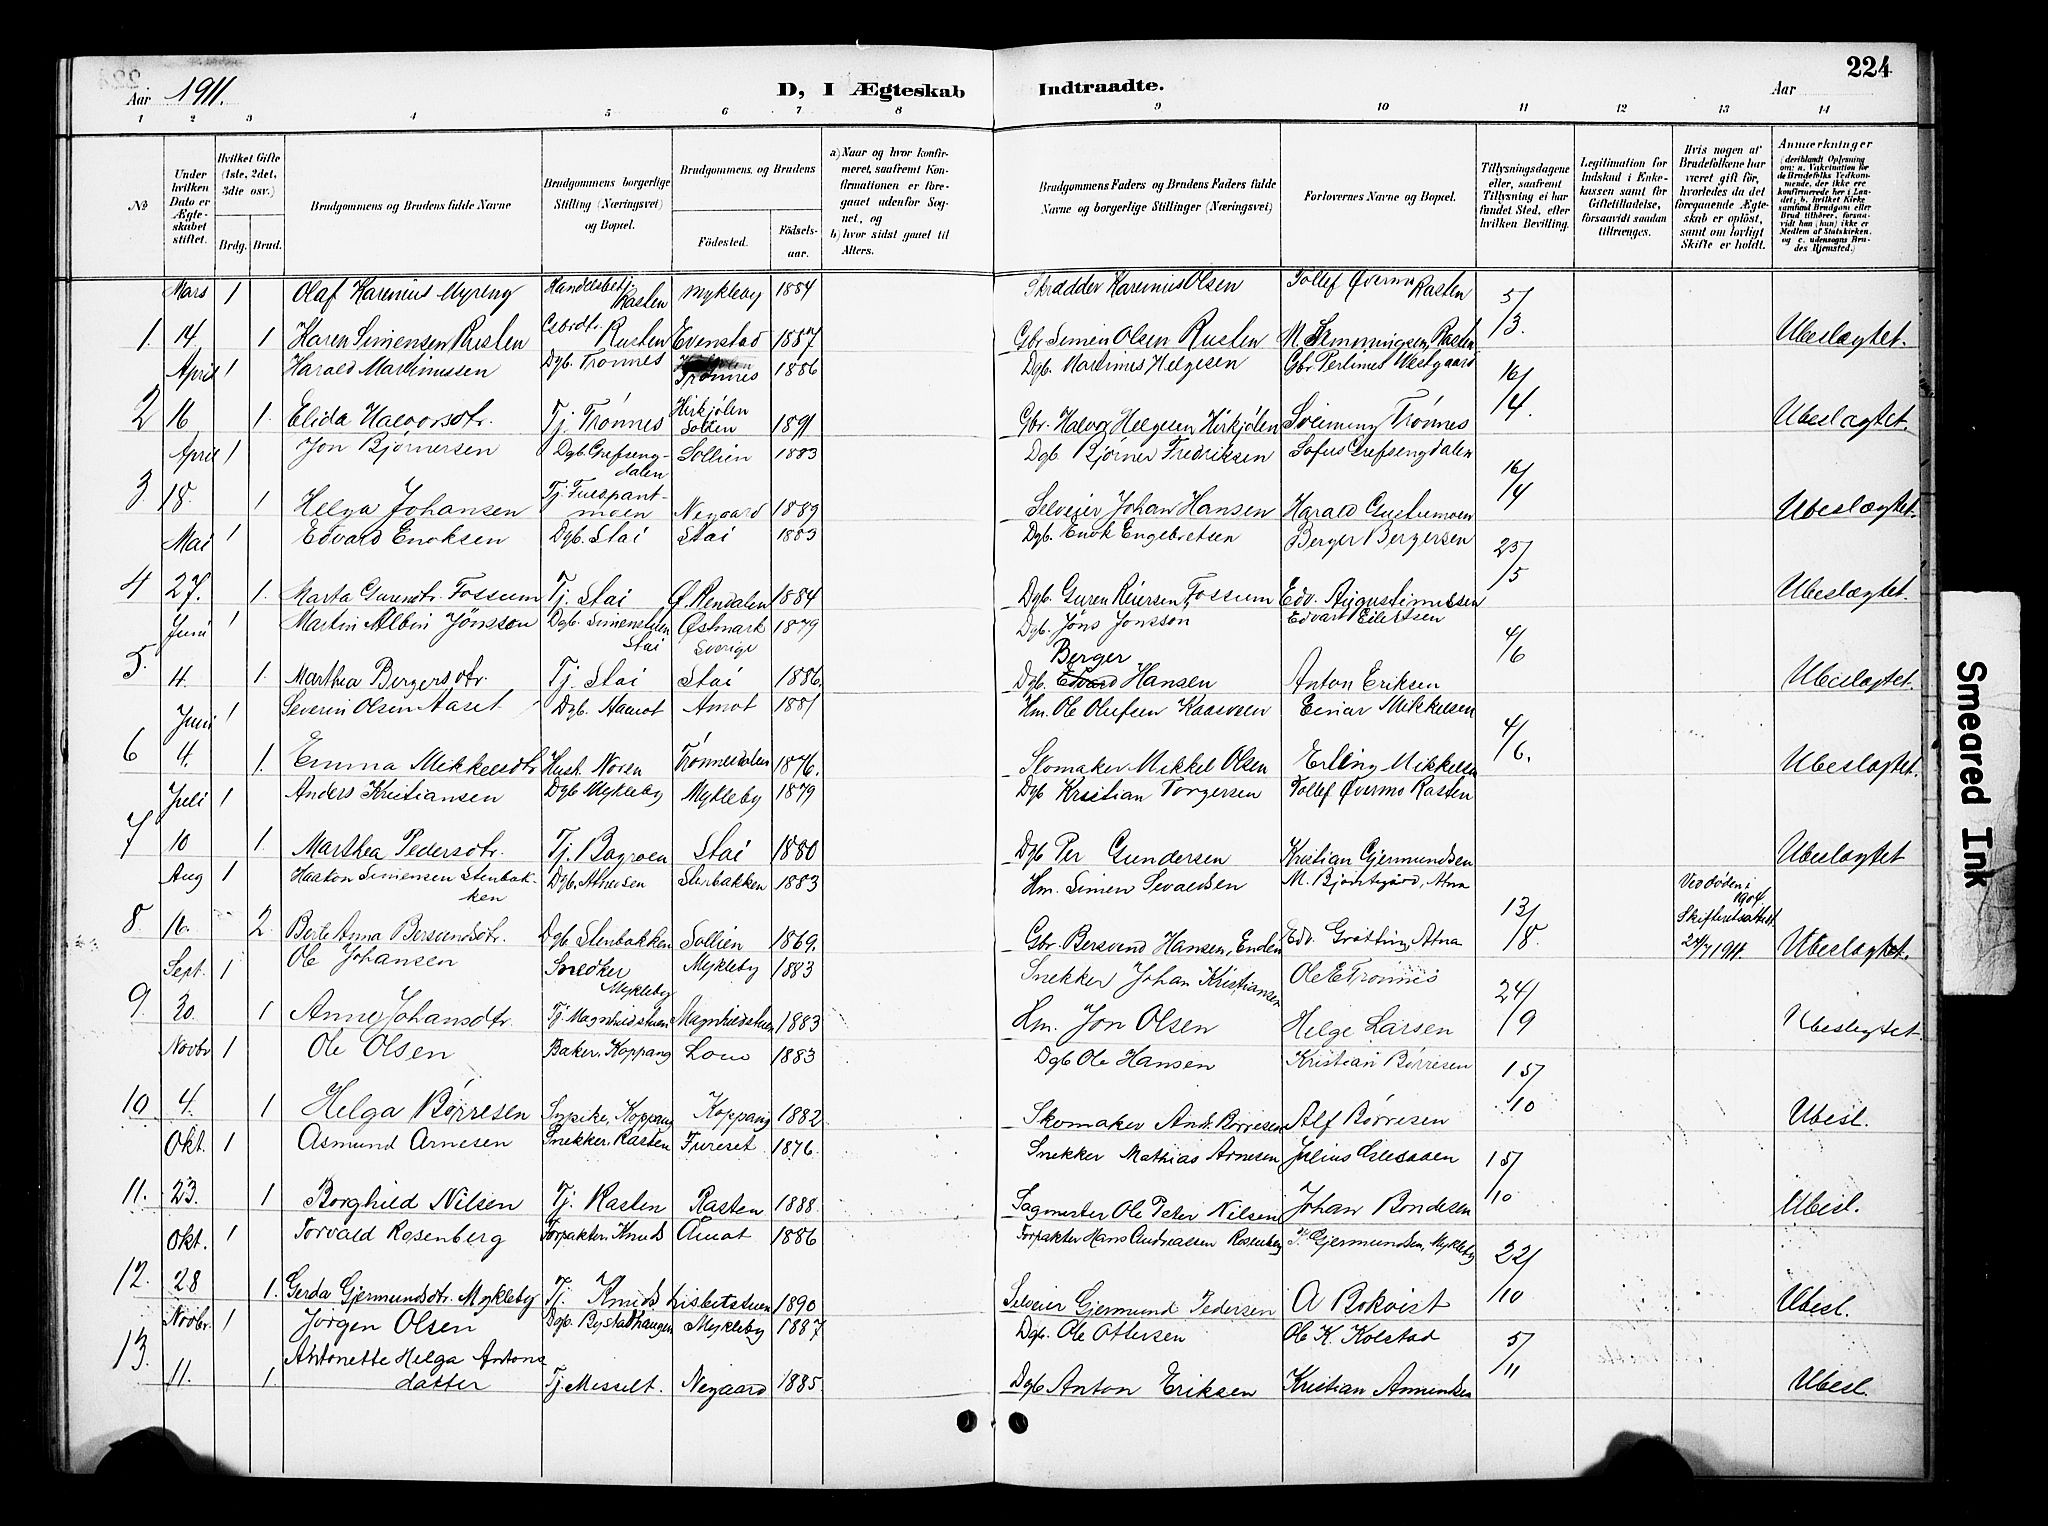 224
Aar 1911.
D, I Ægteskab Indtraadte.
Aar
1 2 3 4 5 6 7 8 9 10 11 12 13 14
No
Under hvilken Dato er Ægteskabet stiftet.
Hvilket Gifte (1ste, 2det, 3die osv.)
Brdg. Brud.
Brudgommens og Brudens fulde Navne
Brudgommens borgerlige Stilling (Næringsvei) og Bopæl.
Brudgommens og Brudens
Födested.
Födselsaar.
a) Naar og hvor konfirmeret, saafremt Konfirmationen er foregaaet udenfor Sognet, og
b) hvor sidst gaaet til Alters.
Brudgommens Faders og Brudens Faders fulde Navne og borgerlige Stillinger (Næringsvei)
Forlovernes Navne og Bopæl.
Tillysningsdagene eller, saafremt Tillysning ei har fundet Sted, efter hvilken Bevilling.
Legitimation for Indskud i Enkekassen samt for Giftetilladelse, forsaavidt saadan tiltrænges.
Hvis nogen af Brudefolkene har været gift för, hvorledes da det foregaaende Ægteskab er oplöst, samt om lovligt Skifte er holdt.
Anmærkninger
(deriblandt Oplysning om: a. Vakcination for de Brudefolks Vedkommende, der ikke ere konfirmerede her i Landet; b. hvilket Kirkesamfund Brudgom eller Brud tilhörer, forsaavidt han (hun) ikke er Medlem af Statskirken, og c. udensogns Brudes Hjemsted.)
Mars 1 Olaf Karenius Myreng Handelsbetj. Rasten Mykleby 1884 Skrædder Karenius Olsen Tollef Øvermo Rasten 5/
1. 14 1 Karen Simensen Rusten Gbrdtr. Rusten Evenstad 1887 Gbr Simen Olsen Rusten M. Rasten /3. Ubeslægtet.
April 1 Harald Martinussen Dgb. Trønnes Trønnes 1886 Dgb. Martinus Helgesen Gbr Perlinus Vestgaard 16/
2 16 1. Elida Halvorsdtr. Tj. Trønnes Hirkjølen Sollien 1891 Gbr. Halvor Helgesen Hirkjølen Trønnes /4. Ubeslægtet.
April 1 Jon Bjørnersen Dgb. Grefsengdalen Sollien 1883 Dgb. Bjørner Fredriksen Sofus Grefsengdalen 16/
3 18. 1 Helga Johansen Tj. moen Negaard 1889 Selveier Johan Hansen Harald /4 Ubeslægtet.
Mai 1 Edvard Enoksen Dgb. Stai Stai 1883 Dgb. Enok Engebretsen Berger Bergersen 25/
4 27. 1. Marta Gurendtr. Fossum Tj. Stai Ø. Rendalen 1884 Dgb. Guren Fossum Edv. Augustinussen /5 Ubeslægtet.
Juni 1 Martin Albin Jønsson Dgb. Simenstuen Stai Østmark Sverige 1879 Dgb. Jøns Jonsson Edvart Eilertsen 4/
5. 4. 1. Marthea Bergersdtr. Tj. Stai Stai 1886. Dgb. Berger Hansen Anton Eriksen /6 Ubeslægtet.
Juni 1 Severin Olsen Aaset Dgb. Aamot Amot 1881 Hm. Ole Olufsen Kaasveen Einar Mikkelsen 4/
6 4. 1. Emma Mikkelsdtr Hush. Noren Trønnesdalen 1876. Skomaker Mikkel Olsen Erling Mikkelsen /6. Ubeslægtet.
Juli 1 Anders Kristiansen Dgb Mykleby Mykleby 1879 Dgb Kristian Torgersen Tollef Øvermo Rasten
7 10 1. Marthea Pedersdtr. Tj. Bagroen Stai 1880 Dgb Per Gundersen Kristian Gjermundsen Ubeslægtet
Aug 1 Haakon Simensen Stenbakken Dgb. Atneosen Stenbakken 1883 Hm. Simen Sevaldsen M. Bjørtegård, Atna 13/ Ved døden i 1904.
8. 16. 2. Berte Anna Bersvendsdtr. Dgb Stenbakken Sollien 1869. Gbr. Bersvend Hansen, Enden Edv. Grøtting, Atna /8. Skifteretsattest 24/7 1911. Ubeslægtet.
Sept. 1 Ole Johansen Snedker Mykleby Mykleby 1883 Snekker Johan Kristiansen Ole E Trønnes 24/
9. 30. 1 Anne Johansdtr. Tj. Magnhildstuen Magnhildstuen 1883 Hm. Jon Olsen Helge Larsen /9 Ubeslægtet.
Novbr 1 Ole Olsen Baker, Koppang Lom 1883 Dgb Ole Hansen Kristian Børresen 15/
10. 4. 1 Helga Børresen Sypike, Koppang Koppang 1882. Skomaker And. Børresen Alf Børresen /10 Ubesl.
Okt. 1 Asmund Arnesen Snekker, Rasten Fureset 1876. Snekker Mathias Arnesen Julius 15/
11. 23. 1 Borghild Nilsen Tj. Rasten Rasten 1888. Sagmester Ole Peter Nilsen Johan Bondesen /10 Ubesl.
Okt. 1 Torvald Rosenberg Forpakter. Knuds Amot 1886 Forpakter Hans Andreassen Rosenberg P. Gjermundsen, Mykleby 22/
12. 28 1. Gerda Gjermundsdtr. Mykleby Tj. Knuds Lisbetstuen 1890 Selveier Gjermund Pedersen A Bokvist /10 Ubesl.
Novbr. 1 Jørgen Olsen Dgb. Bystadhaugen Mykleby 1887 Dgb. Ole Ottersen Ole K. Kolstad 5/
13. 11. 1. Antonette Helga Antonsdatter Tj. Messelt. Negaard 1885. Dgb Anton Eriksen Kristian /11 Ubesl.
Smeared Ink